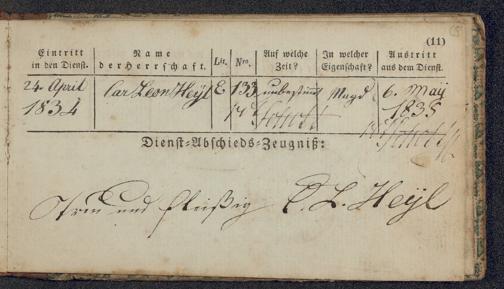 (11)
Eintritt in den Dienst. Name der Herrschaft. Lit. Nro. Auf welche Zeit? In welcher Eigenschaft? Austritt aus dem Dienst.
24. April Carl Leon Heÿl E 133 unbestimt Magd 6. Maÿ
1834 1835
Dienst-Abschieds-Zeugniß:
Treu und fleißig C. L. Heÿl